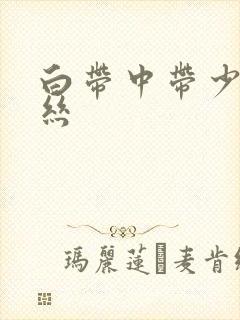 白帶中帶少
絲
瑪麗蓮麥肯